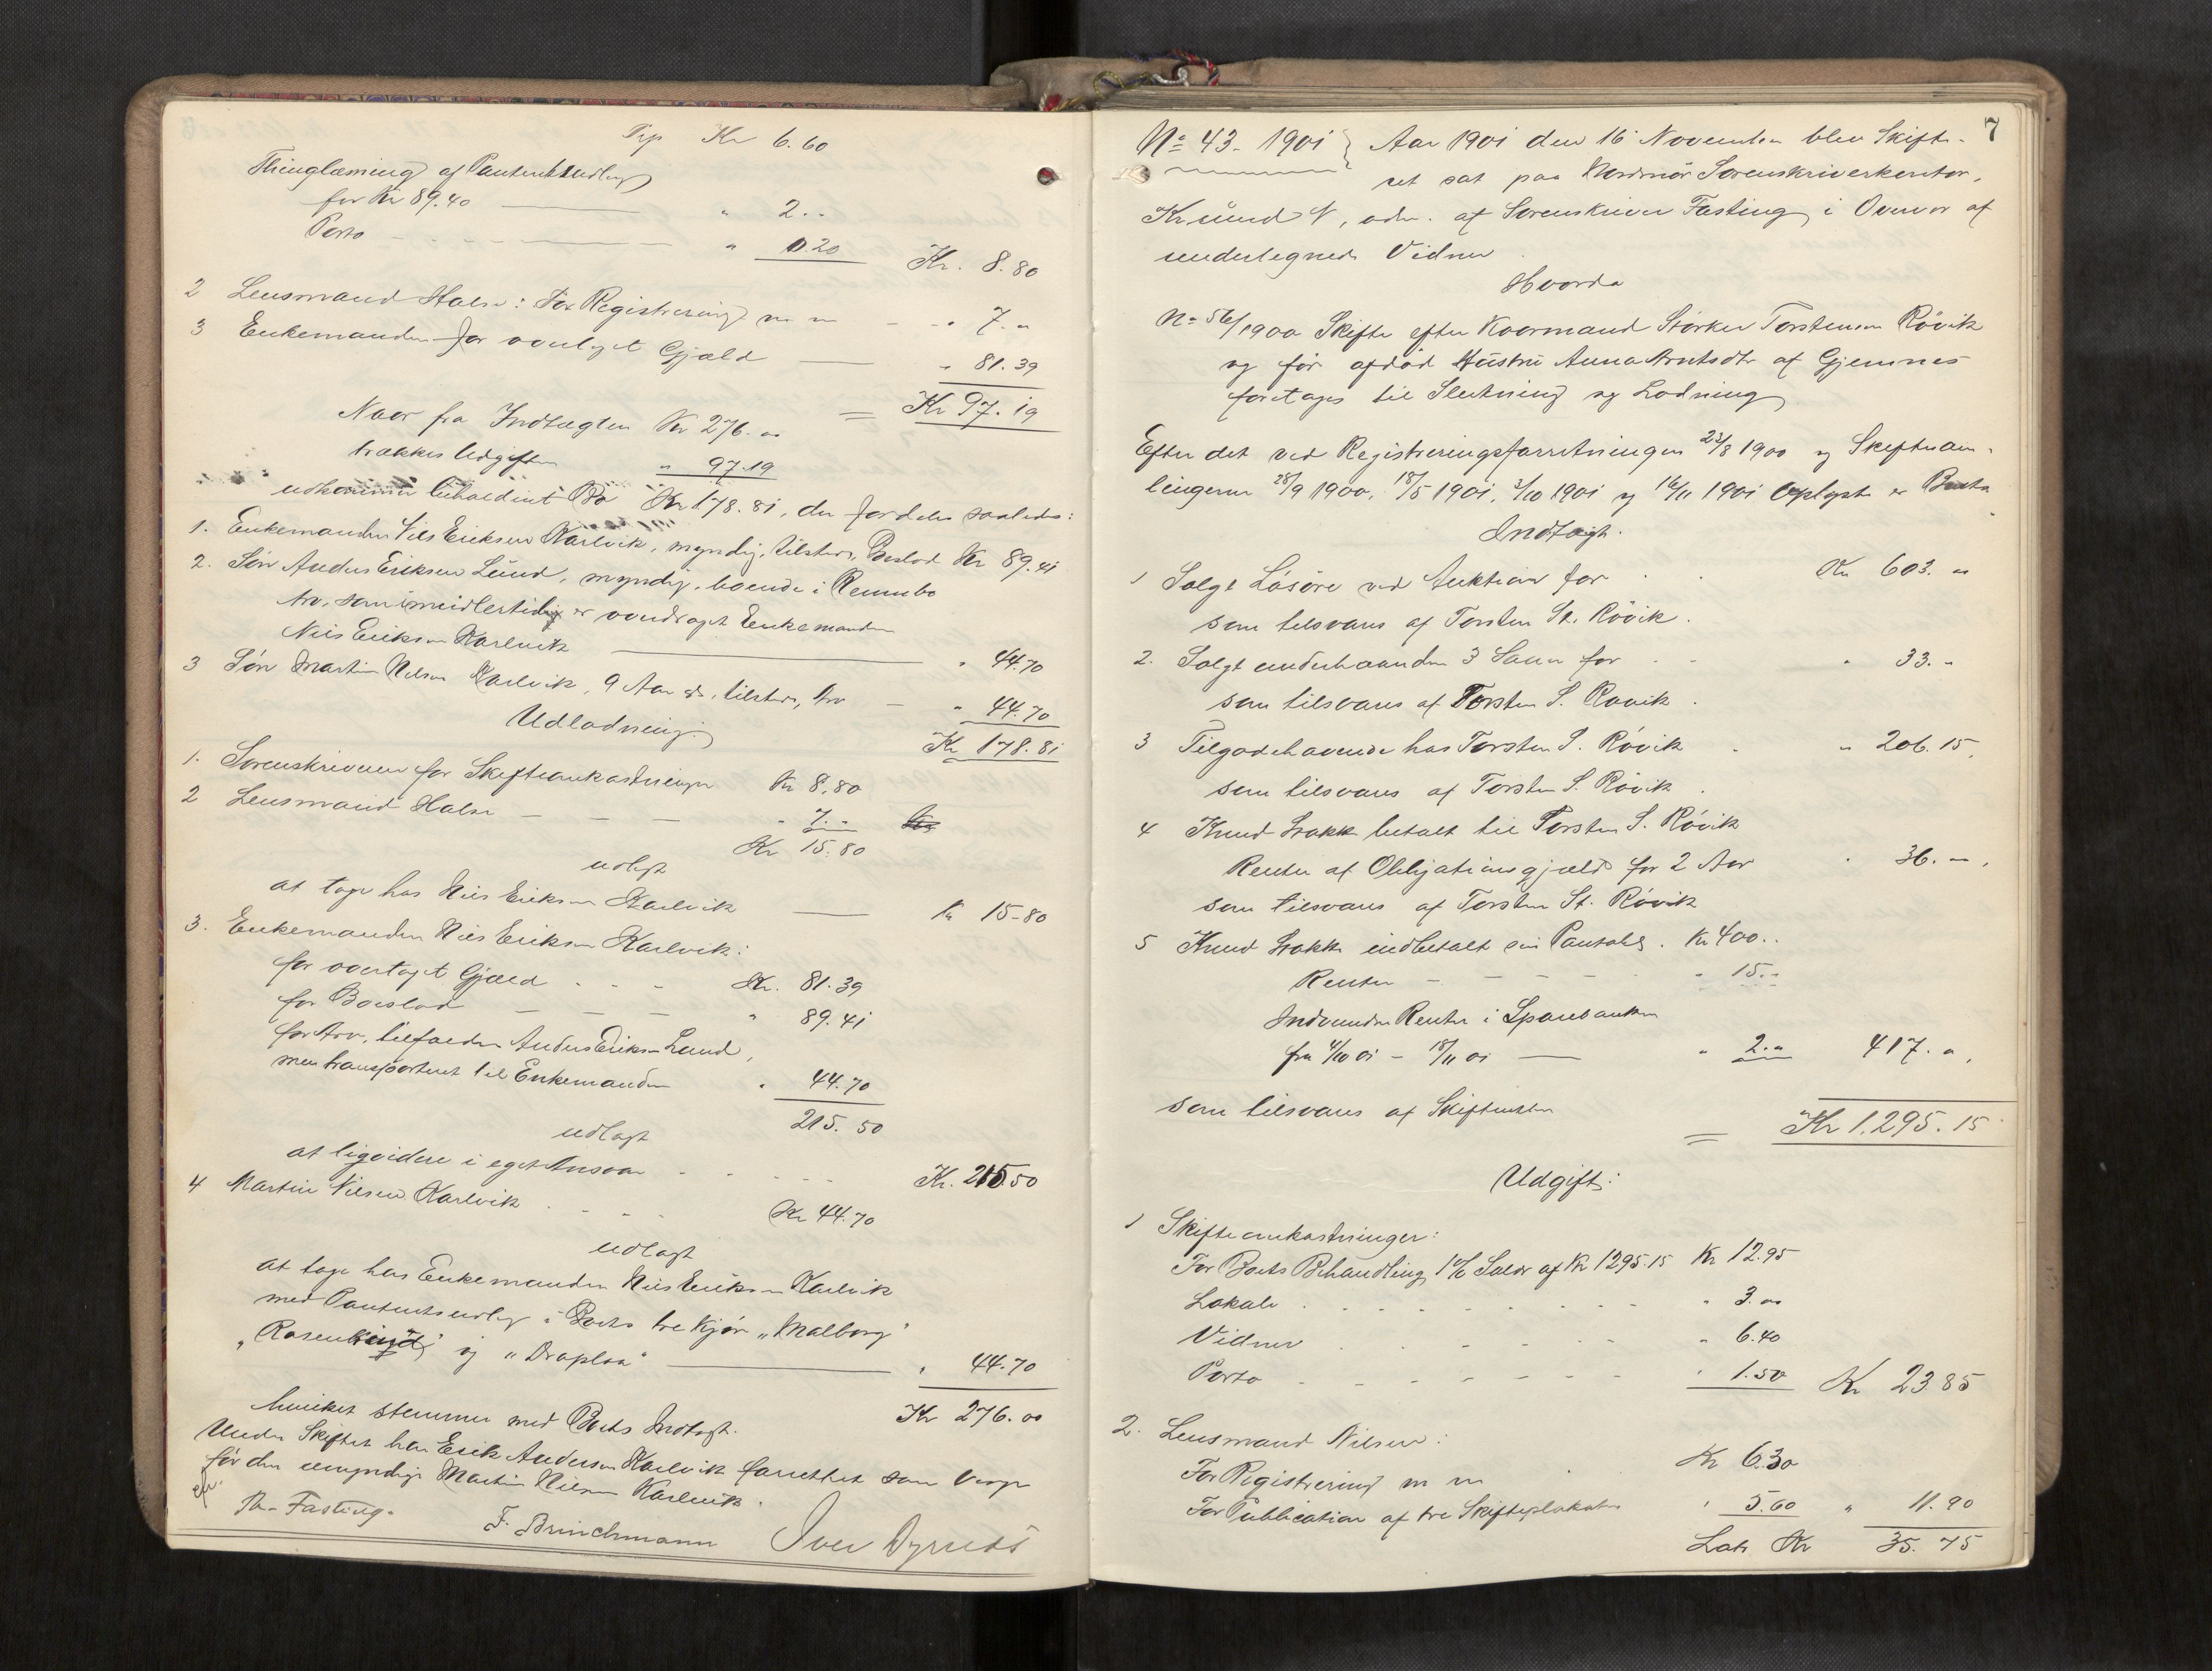 Trp Kr 6.60
Thinglæsning af Panteudlæg
for Kr 89.40 — " 2. "
Porto — " 0.20 Kr. 8.80
2 Lensmand Halse: For Registrering m m - - " 7. "
3 Enkemanden for overtaget Gjæld — " 81.39
= Kr 97.19
Naar fra Indtægten Kr 276. "
trækkes Udgiften " 97.19
udkommer beholdent Bo Kr 178.81, der fordeles saaledes:
1. Enkemanden Nils Eriksen Karlvik, myndig, tilstede, Boslod Kr 89.41
2. Søn Anders Eriksen Lund, myndig, boende i Rennebo
Arv, som imidlertidig er overdraget Enkemanden
Nils Eriksen Karlvik — " 44.70
3 Søn Martin Nilsen Karlvik, 9 Aar gl., tilstede, Arv — " 44.70
Kr 178.81
Udlodning.
1. Sorenskriveren for Skifteomkostninger Kr 8.80
2 Lensmand Halse — — — " 7. "
Kr 15.80
udlagt
at tage hos Nils Eriksen Karlvik — Kr 15-80
3. Enkemanden Nils Eriksen Karlvik:
for overtaget Gjæld . . - Kr. 81.39
for Boslod — — — " 89.41
for Arv, tilfalden Anders Eriksen Lund,
men transporteret til Enkemanden " 44.70
215.50
udlagt
at liqvidere i eget Ansvar - - - - - Kr. 215.50
4 Martin Nilsen Karlvik . - - - Kr 44.70
udlagt
at tage hos Enkemanden Nils Eriksen Karlvik
med Panteretsudlæg i Boets tre Kjør „Malborg"
„Rosenlind" og „Draplaa" — " 44.70
Kr 276.00
hvilket stemmer med Boets Indtægt.
Under Skiftet har Erik Andersen Karlvik forrettet som Verge
for den umyndige Martin Nilsen Karlvik.
Th. Fasting. F. Brinchmann Iver Dyrnes
7
No 43. 1901 } Aar 1901 den 16 November blev Skifte-
ret sat paa Nordmør Sorenskriverkontor,
Kr.sund N, adm. af Sorenskriver Fasting i Overvær af
undertegnede Vidner
Hvorda
No 56/1900 Skifte efter Kaarmand Størker Torstensen Røvik
og før afdød Hustru Anna Arntsdtr af Gjemnes
foretages til Slutning og Lodning
Efter det ved Registreringsforretningen 23/8 1900 og Skiftesam-
lingerne 28/9 1900, 18/5 1901, 3/10 1901 og 16/11 1901 Oplyste er Boets
Indtægt.
1 Solgt Løsøre ved Auktion for . . Kr 603. "
som tilsvares af Torsten St. Røvik.
2. Solgt underhaanden 3 Sauer for - - " 33. "
som tilsvares af Torsten S. Røvik.
3 Tilgodehavende hos Torsten S. Røvik - " 206.15.
som tilsvares af Torsten S. Røvik.
4 Knud Stokke betalt til Torsten S. Røvik
Renter af Obligationsgjæld for 2 Aar . 36. - .
som tilsvares af Torsten St. Røvik
5 Knud Stokke indbetalt sin Pantobl. Kr 400. .
Renter - - - - - " 15. "
Indvundne Renter i Sparebanken
fra 4/10 01 - 15/11 01 — " 2. " 417. " .
som tilsvares af Skifteretten
= Kr 1.295.15
Udgift:
1 Skifteomkostninger:
For Boets Behandling, 1% Salær af Kr 1295.15 Kr 12.95
Lokale . . . . . . . " 3. "
Vidner . . - - - - " 6.40
Porto - - - - - - " 1.50 Kr 23 85
2. Lensmand Nilsen:
For Registrering m m . Kr 6.30
For Publication af tre Skifteplakater " 5.60 " 11.90
Lat. Kr 35.75